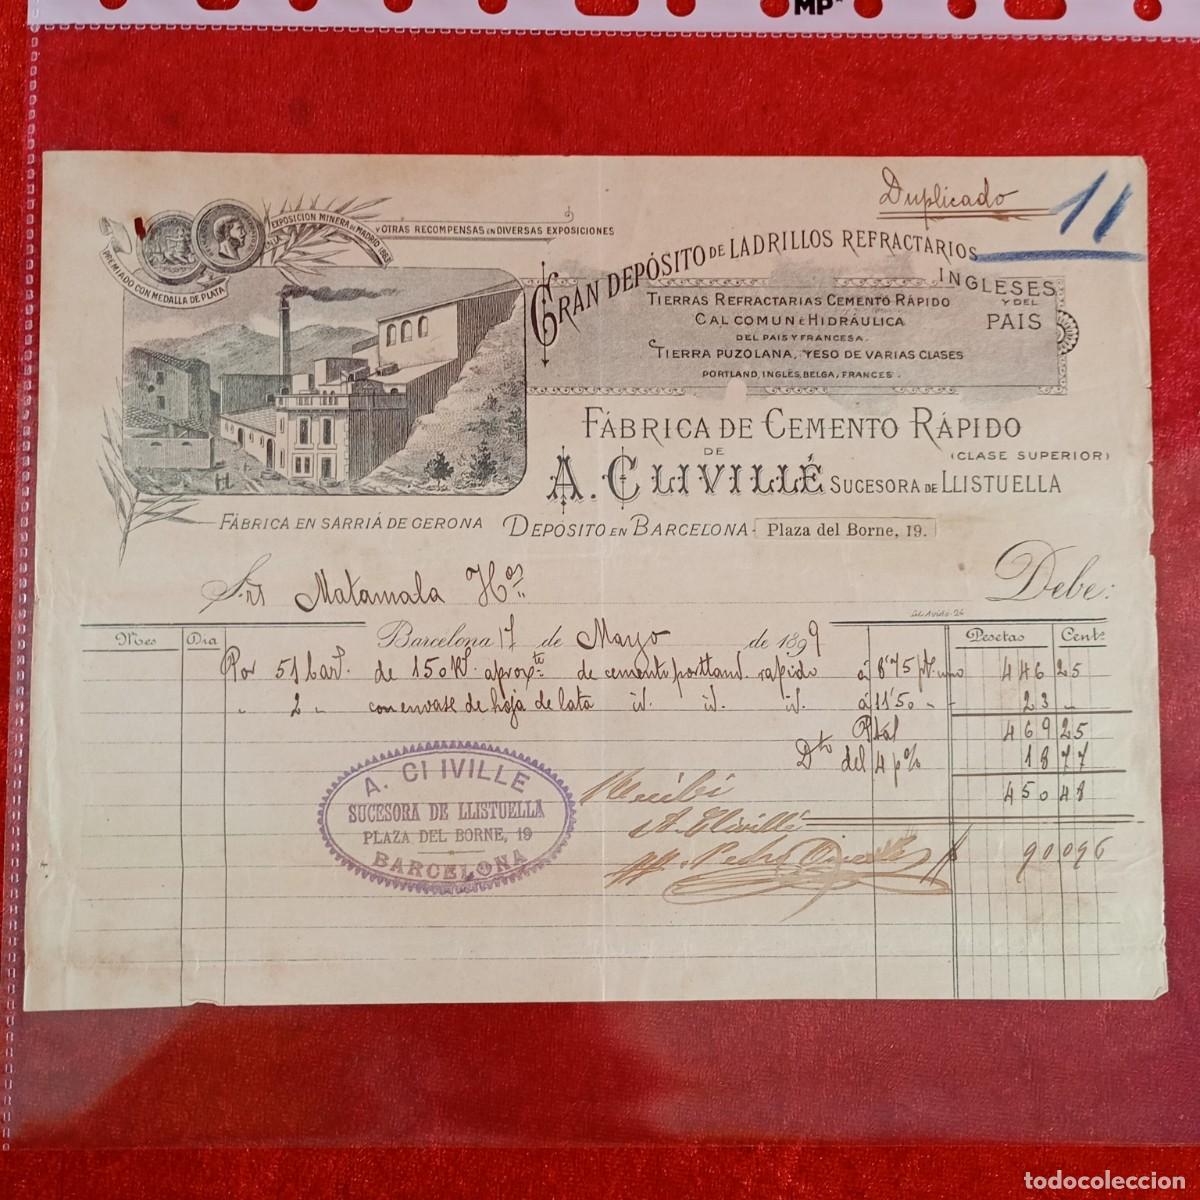 MP
Duplicado
11
PREMIADO CON MEDALLA DE PLATA
EN LA EXPOSICION MINERA DE MADRID 1883
Y OTRAS RECOMPENSAS EN DIVERSAS EXPOSICIONES
GRAN DEPÓSITO DE LADRILLOS REFRACTARIOS
INGLESES
Y DEL
PAIS
TIERRAS REFRACTARIAS CEMENTO RÁPIDO
CAL COMUN É HIDRÁULICA
DEL PAIS Y FRANCESA.
TIERRA PUZOLANA, YESO DE VARIAS CLASES
PORTLAND, INGLÉS, BELGA, FRANCES.
FÁBRICA DE CEMENTO RÁPIDO
DE
(CLASE SUPERIOR)
A. CLIVILLÉ SUCESORA DE LLISTUELLA
FÁBRICA EN SARRIÁ DE GERONA
DEPÓSITO EN BARCELONA - Plaza del Borne, 19.
Srs Matamala Hos
Debe:
Mes Dia Barcelona 17 de Mayo de 1899 Pesetas Cents
Por 51 barl. de 150 K. aproxte de cemento portland rapido á 8'75 pts. uno 446 25
" 2 " con envase de hoja de lata id. id. id. á 11'50 " " 23 "
469 25
Dto del 4 p% 18 77
450 48
A. CLIVILLE
SUCESORA DE LLISTUELLA
PLAZA DEL BORNE, 19
BARCELONA
Recibi
A. Clivillé
Pedro
900 96
todocoleccion